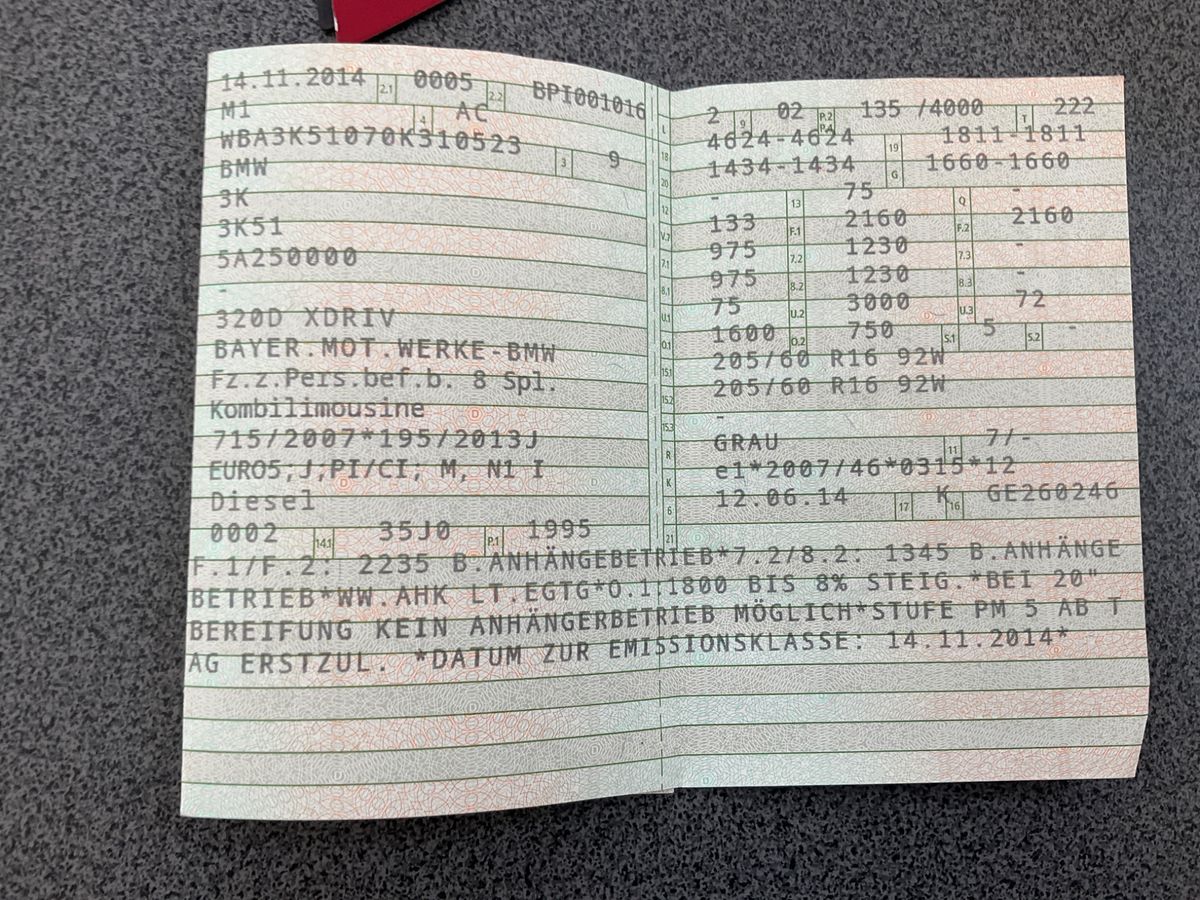 14.11.2014 2.1 0005 2.2 BPI001016
M1 4 AC
WBA3K51070K310523 3 9
BMW
3K
3K51
5A250000
-
320D XDRIV
BAYER.MOT.WERKE-BMW
Fz.z.Pers.bef.b. 8 Spl.
Kombilimousine
715/2007*195/2013J
EURO5;J;PI/CI; M, N1 I
Diesel
0002 14.1 35J0 P.1 1995
L 2 9 02 P.2 P.4 135 /4000 T 222
18 4624-4624 19 1811-1811
20 1434-1434 G 1660-1660
12 - 13 75 Q -
V.7 133 F.1 2160 F.2 2160
7.1 975 7.2 1230 7.3 -
8.1 975 8.2 1230 8.3 -
U.1 75 U.2 3000 U.3 72
O.1 1600 O.2 750 S.1 5 S.2 -
15.1 205/60 R16 92W
15.2 205/60 R16 92W
15.3 -
R GRAU 11 7/-
K e1*2007/46*0315*12
6 12.06.14 17 K 16 GE260246
21
F.1/F.2: 2235 B.ANHÄNGEBETRIEB*7.2/8.2: 1345 B.ANHÄNGE
BETRIEB*WW.AHK LT.EGTG*O.1:1800 BIS 8% STEIG.*BEI 20"
BEREIFUNG KEIN ANHÄNGERBETRIEB MÖGLICH*STUFE PM 5 AB T
AG ERSTZUL. *DATUM ZUR EMISSIONSKLASSE: 14.11.2014*